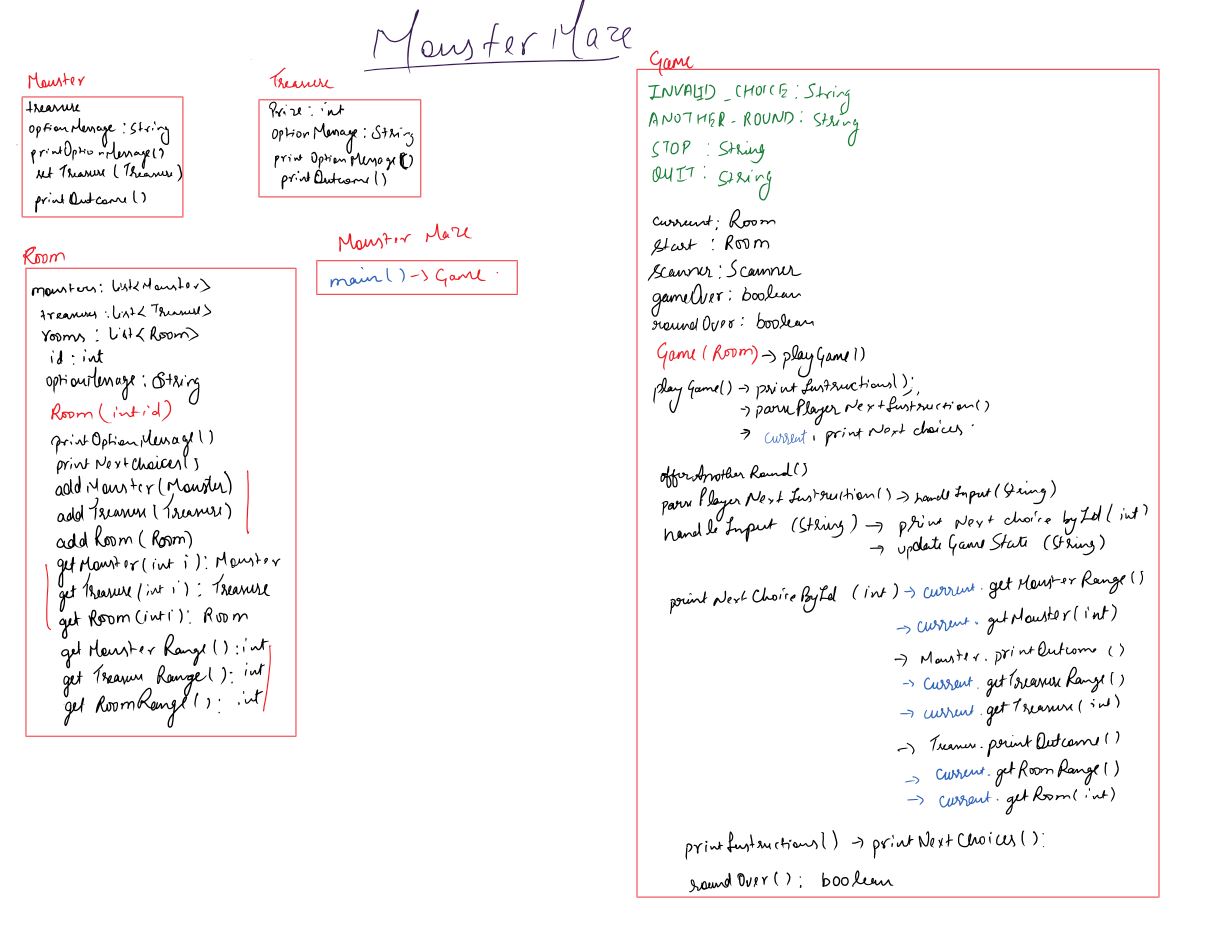 Monster Maze
Monster
treasure
optionMessage : String
printOptionMessage()
set Treasure (Treasure)
printOutcome()
Treasure
Prize : int
optionMessage : String
print OptionMessage()
printOutcome()
Room
monsters: List<Monster>
treasures : List<Treasure>
rooms : List<Room>
id : int
optionMessage : String
Room (int id)
printOptionMessage()
printNextChoices()
addMonster(Monster)
addTreasure (Treasure)
addRoom (Room)
getMonster(int i): Monster
getTreasure(int i): Treasure
getRoom(int i): Room
getMonsterRange(): int
get Treasure Range(): int
get RoomRange(): int
Monster Maze
main() -> Game
Game
INVALID_CHOICE : String
ANOTHER-ROUND : String
STOP : String
QUIT : String
current : Room
start : Room
scanner : Scanner
gameOver : boolean
roundOver : boolean
Game (Room) -> playGame()
playGame() -> printInstructions();
-> parsePlayerNextInstruction()
-> current. print Next choices
offerAnotherRound()
parsePlayerNextInstruction() -> handleInput(String)
handleInput (String) -> print Next choice by Id (int)
-> updateGameState (String)
printNextChoiceById (int) -> current. getMonsterRange()
-> current. getMonster(int)
-> Monster. printOutcome ()
-> current. getTreasureRange()
-> current. getTreasure(int)
-> Treasure. printOutcome()
-> current. getRoomRange()
-> current. getRoom(int)
printInstructions() -> printNextChoices():
roundOver(): boolean